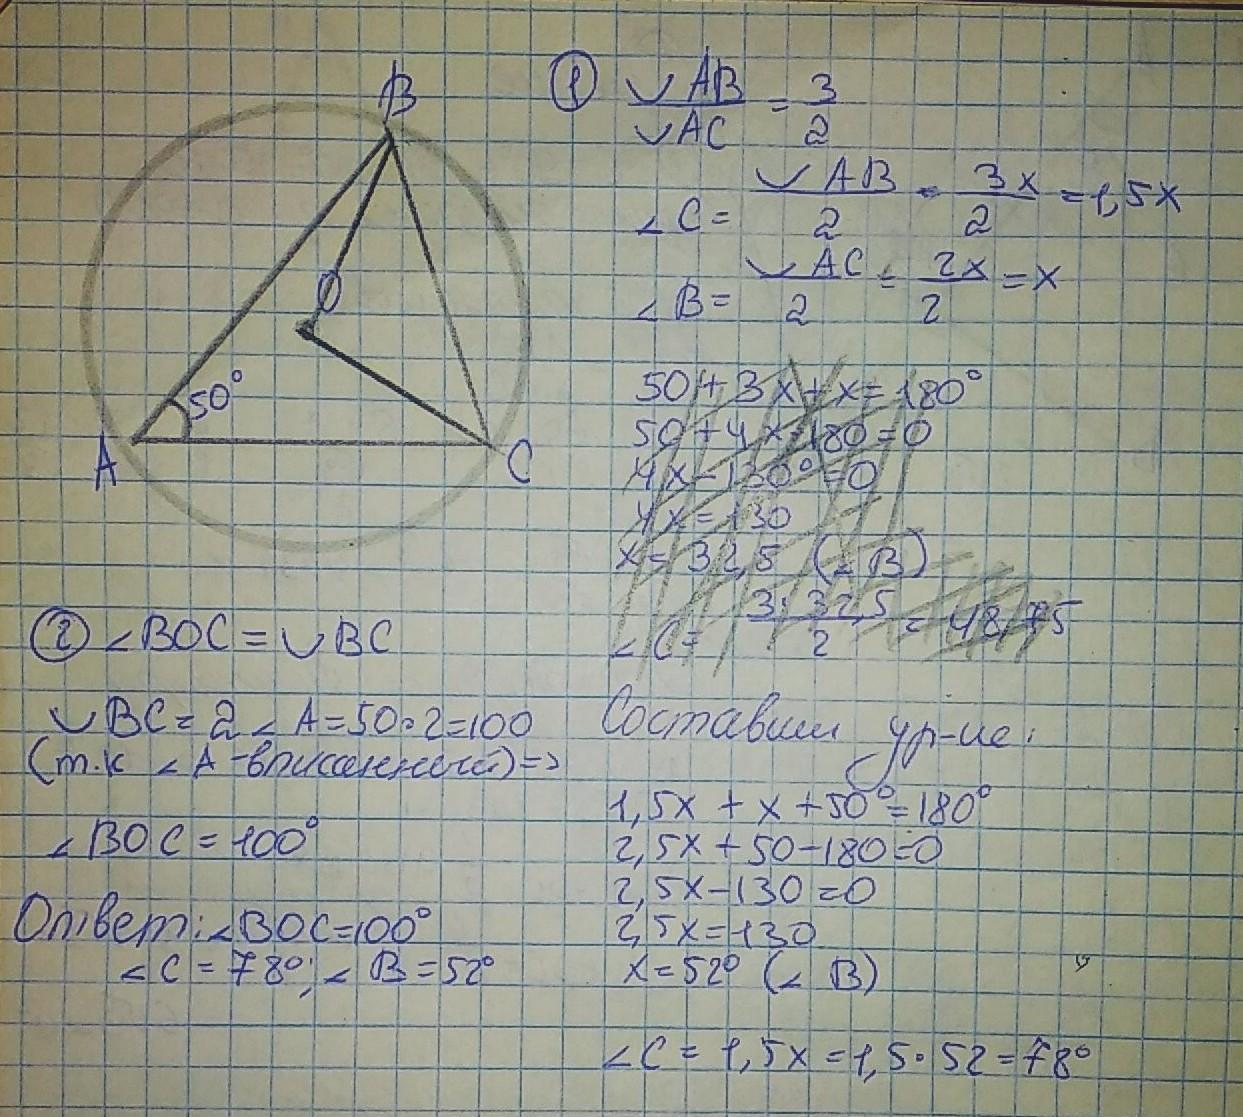 B
O
50°
A
C
① ◡AB / ◡AC = 3 / 2
∠C = ◡AB / 2 = 3x / 2 = 1,5x
∠B = ◡AC / 2 = 2x / 2 = x
50 + 3x + x = 180°
50 + 4x - 180 = 0
4x - 130° = 0
4x = 130
x = 32,5 (∠B)
∠C = 3 · 32,5 / 2 = 48,75
Составим ур-ие:
1,5x + x + 50° = 180°
2,5x + 50 - 180 = 0
2,5x - 130 = 0
2,5x = 130
x = 52° (∠ B)
∠C = 1,5x = 1,5 · 52 = 78°
② ∠BOC = ◡BC
◡BC = 2∠A = 50·2 = 100
(т.к ∠A - вписанный) =>
∠BOC = 100°
Ответ: ∠BOC = 100°
∠C = 78°; ∠B = 52°